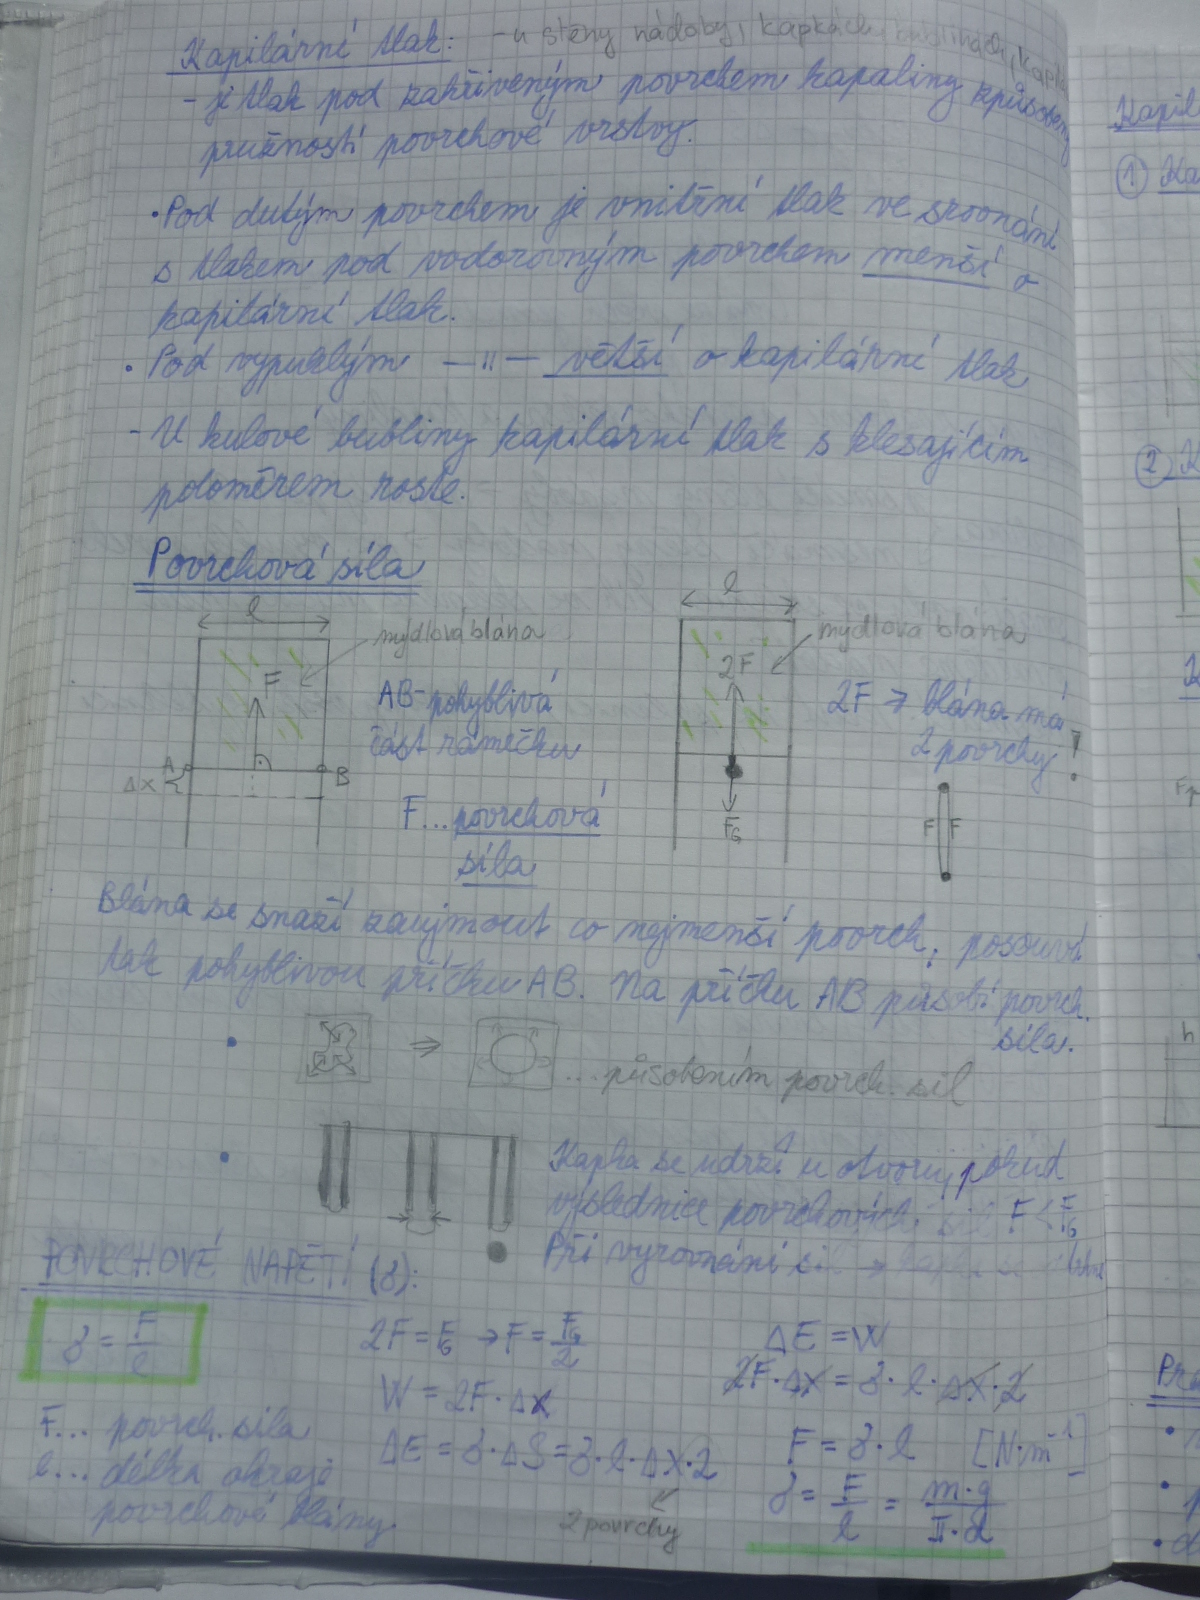 Kapilární tlak: - u stěny nádoby, kapkách, bublinách,
- je tlak pod zakřiveným povrchem kapaliny způsobený
pružností povrchové vrstvy.
• Pod dutým povrchem je vnitřní tlak ve srovnání
s tlakem pod vodorovným povrchem menší o
kapilární tlak.
• Pod vypuklým —"— větší o kapilární tlak
- U kulové bubliny kapilární tlak s klesajícím
poloměrem roste.
Povrchová síla
l
mýdlová blána
F
AB-pohyblivá
část rámečku
A
B
Δx
F... povrchová
síla
l
mýdlová blána
2F
2F → blána má
2 povrchy!
F_G
F F
Blána se snaží zaujmout co nejmenší povrch, posouvá
tak pohyblivou příčku AB. Na příčku AB působí povrch.
síla.
• ⇒ ... působením povrch. sil
• Kapka se udrží u otvoru, pokud
výslednice povrchových sil F < F_G
Při vyrovnání sil →
POVRCHOVÉ NAPĚTÍ (δ):
δ = F/l
F... povrch. síla
l... délka okraje
povrchové blány
2F = F_G → F = F_G/2
W = 2F · Δx
ΔE = δ · ΔS = δ · l · Δx · 2
2 povrchy
ΔE = W
2F · Δx = δ · l · Δx · 2
F = δ · l [N·m⁻¹]
δ = F/l = m·g/π·d
Kapil
①
②
h